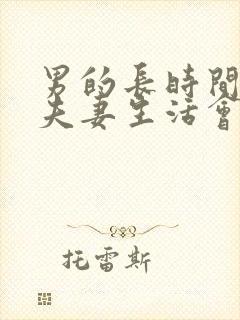 男的長時間
夫妻生活會
托雷斯